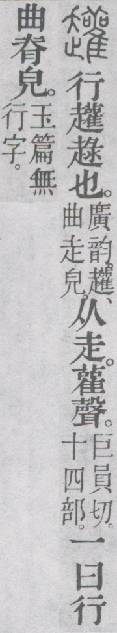 𧾯 行𧾯趢也。廣韵𧾯、曲走皃。从走。雚聲。巨員切。十四部。一曰行
曲脊皃。玉篇無行字。